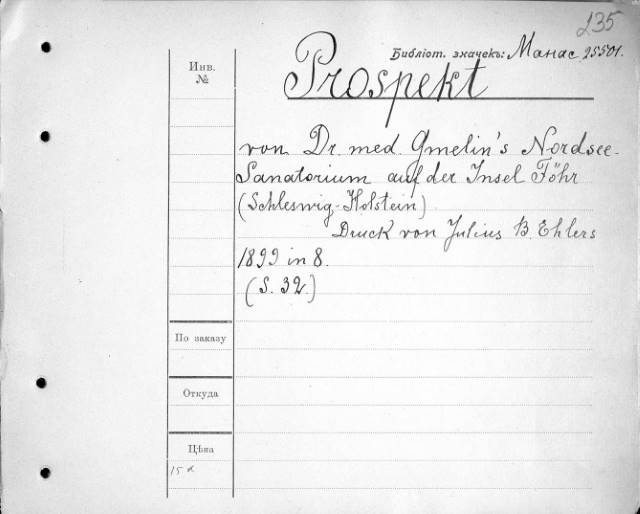 235
Библіот. значекъ: Манас 25501.
Инв.
№
Prospekt
von Dr. med. Gmelin's Nordsee-
Sanatorium auf der Insel Föhr
(Schleswig-Holstein)
Druck von Julius B. Ehlers
1899 in 8.
(S. 32.)
По заказу
Откуда
Цѣна
15